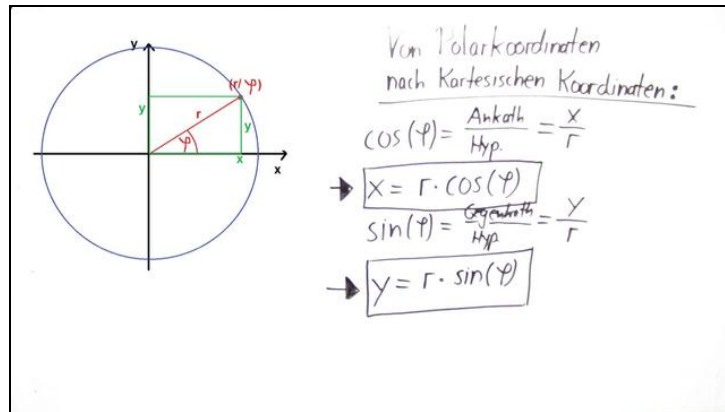 y
(r/φ)
y
r
y
φ
x
x
Von Polarkoordinaten
nach Kartesischen Koordinaten:
cos(φ) = Ankath / Hyp. = x / r
→ x = r · cos(φ)
sin(φ) = Gegenkath / Hyp = y / r
→ y = r · sin(φ)